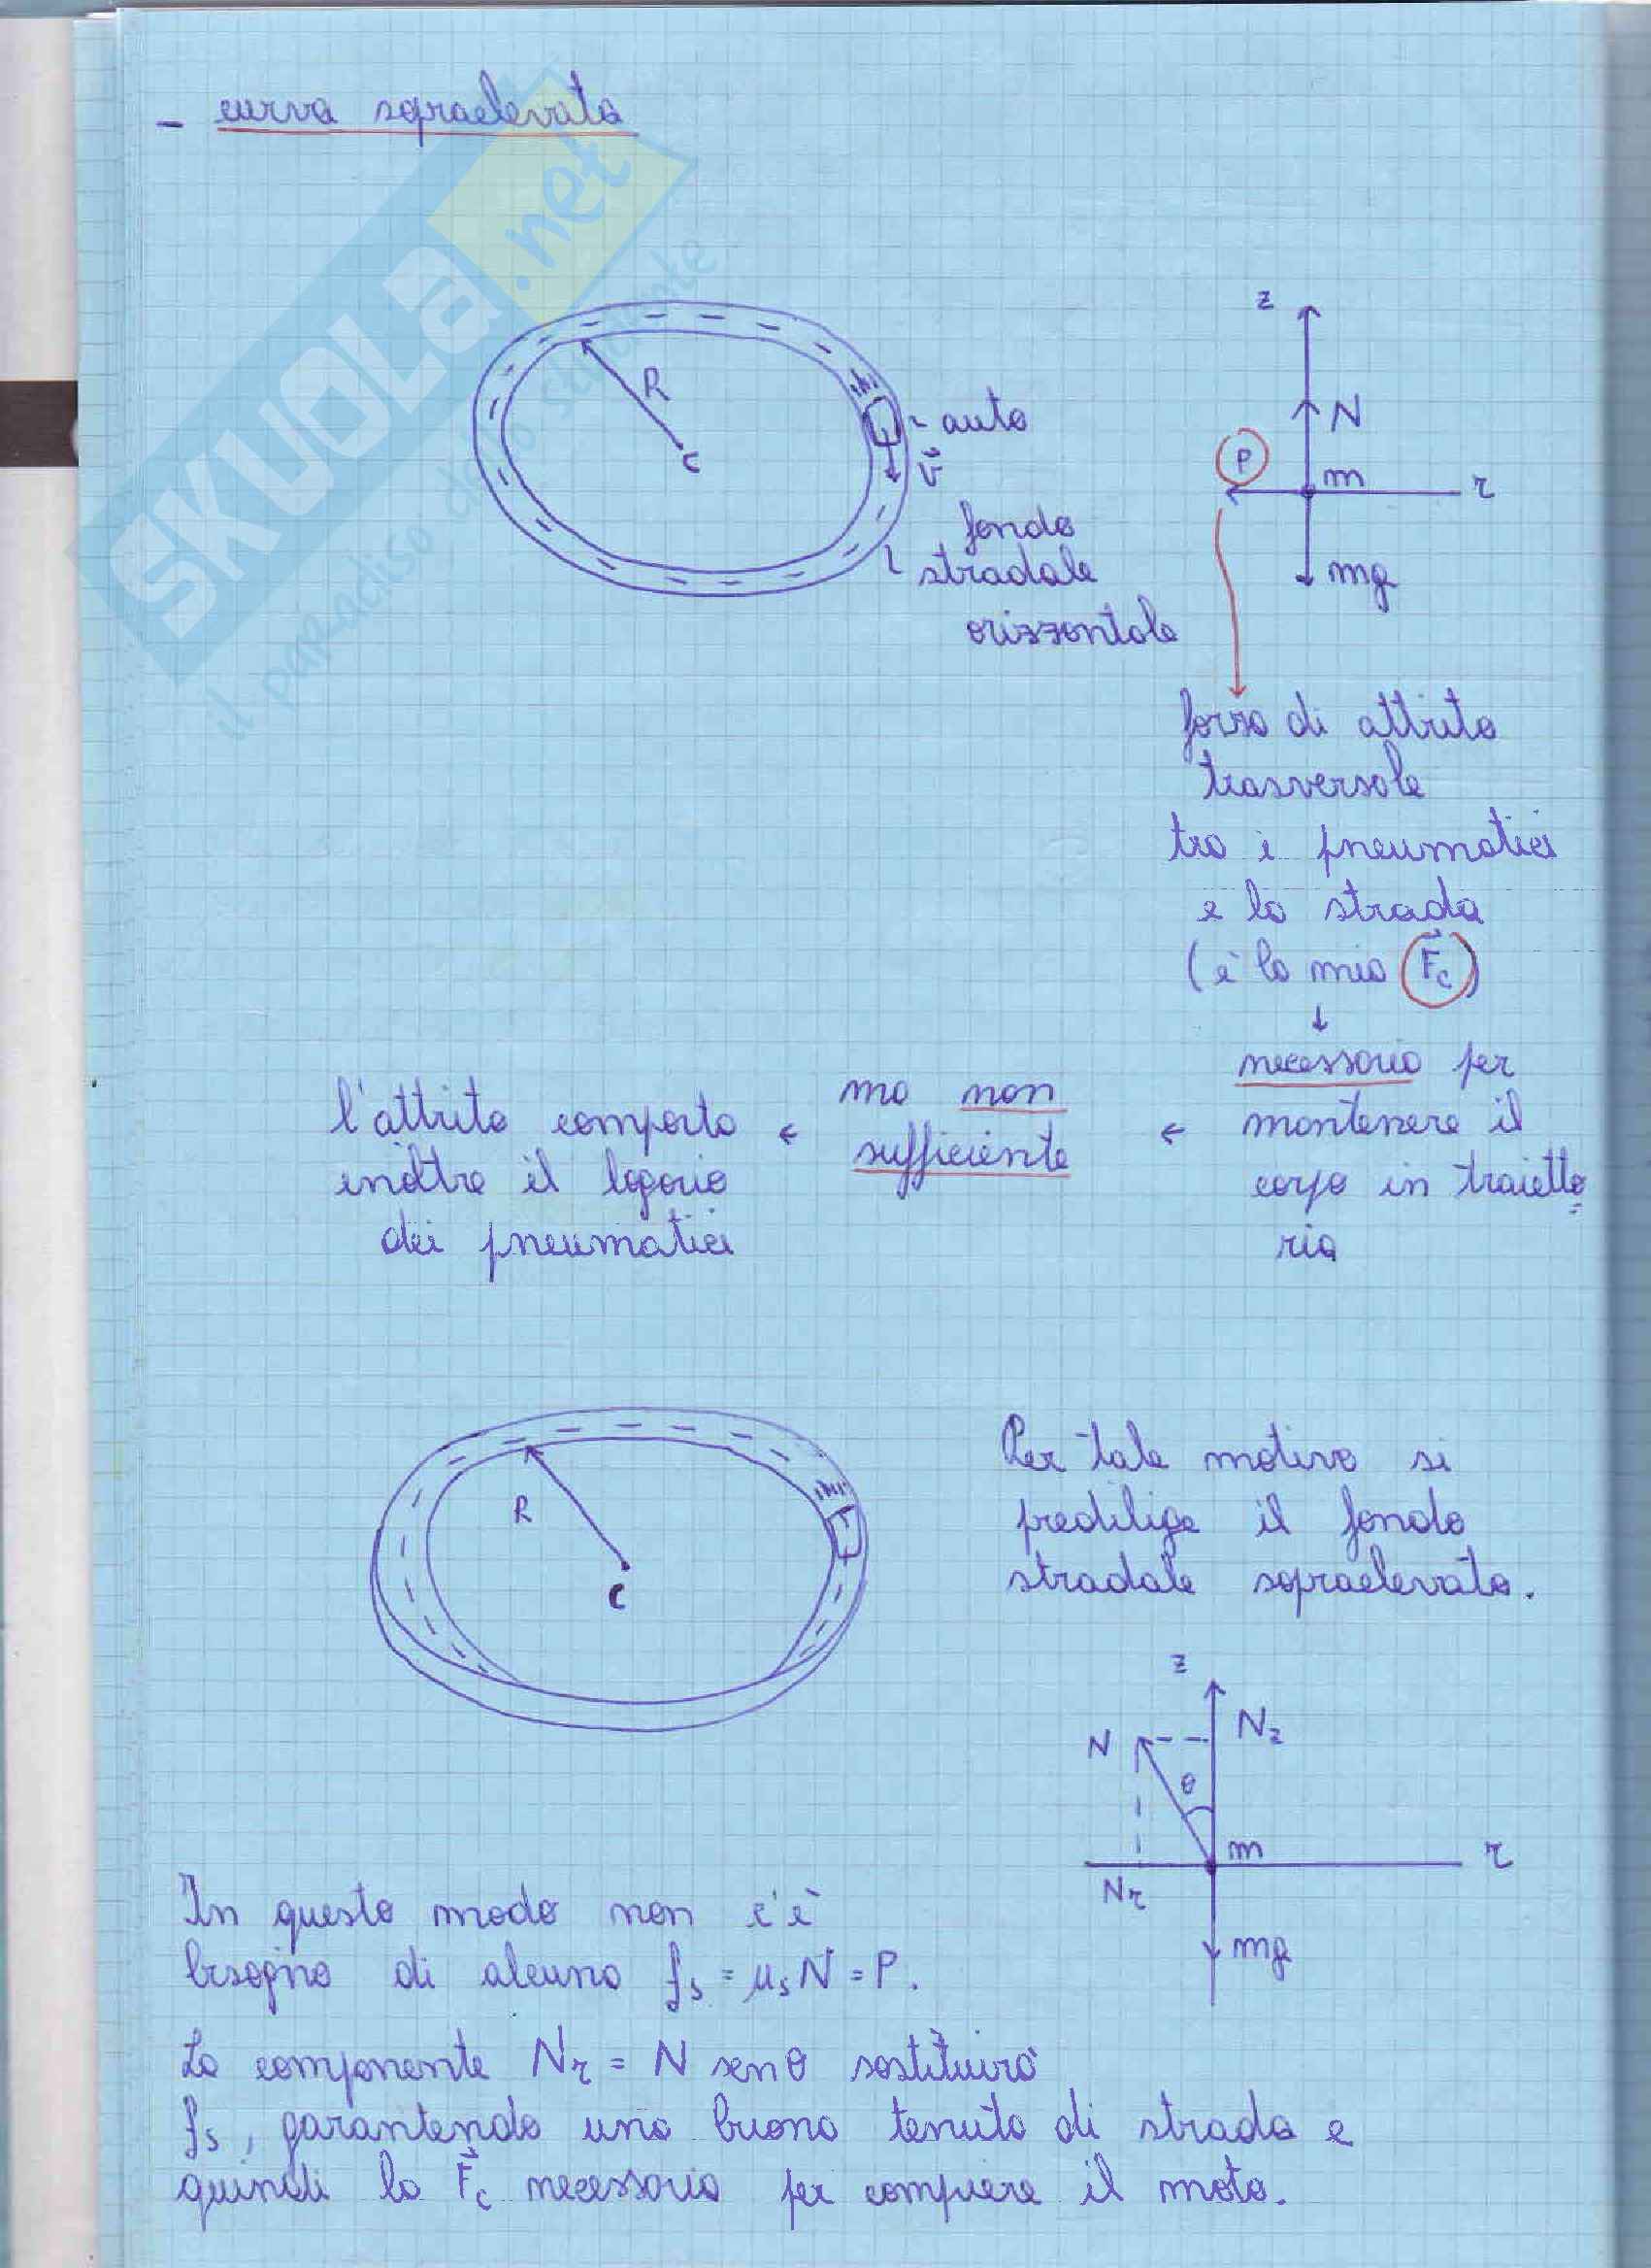 - curva sopraelevata
SKUOLA.net
il paradiso dello studente
R
C
auto
v
fondo
stradale
orizzontale
z
N
P
m
r
mg
forza di attrito
trasversale
tra i pneumatici
e la strada
(è la mia Fc)
↓
necessaria per
mantenere il
corpo in traietto
ria
←
ma non
sufficiente
←
l'attrito comporta
inoltre il logorio
dei pneumatici
R
C
Per tale motivo si
predilige il fondo
stradale sopraelevato.
z
N
Nz
θ
m
r
Nr
mg
In questo modo non c'è
bisogno di alcuna fs = μsN = P.
La componente Nr = N senθ sostituirà
fs, garantendo una buona tenuta di strada e
quindi la Fc necessaria per compiere il moto.